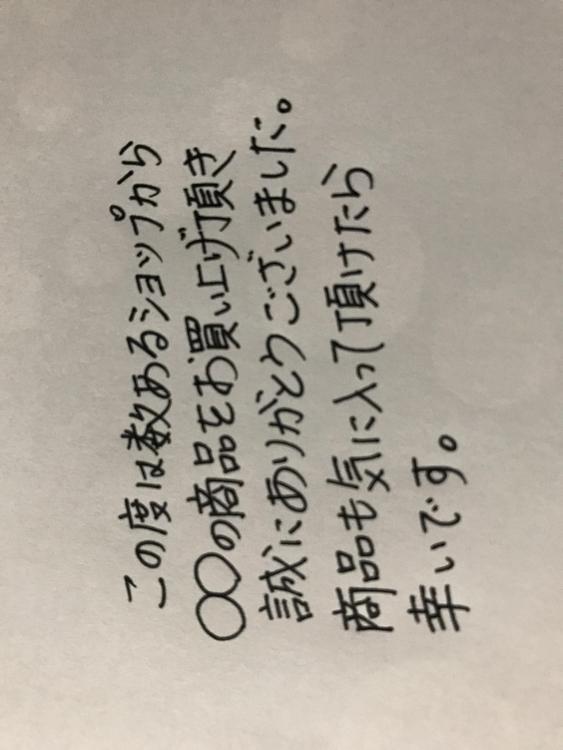 この度は数あるショップから
〇〇の商品をお買い上げ頂き
誠にありがとうございました。
商品も気に入って頂けたら
幸いです。